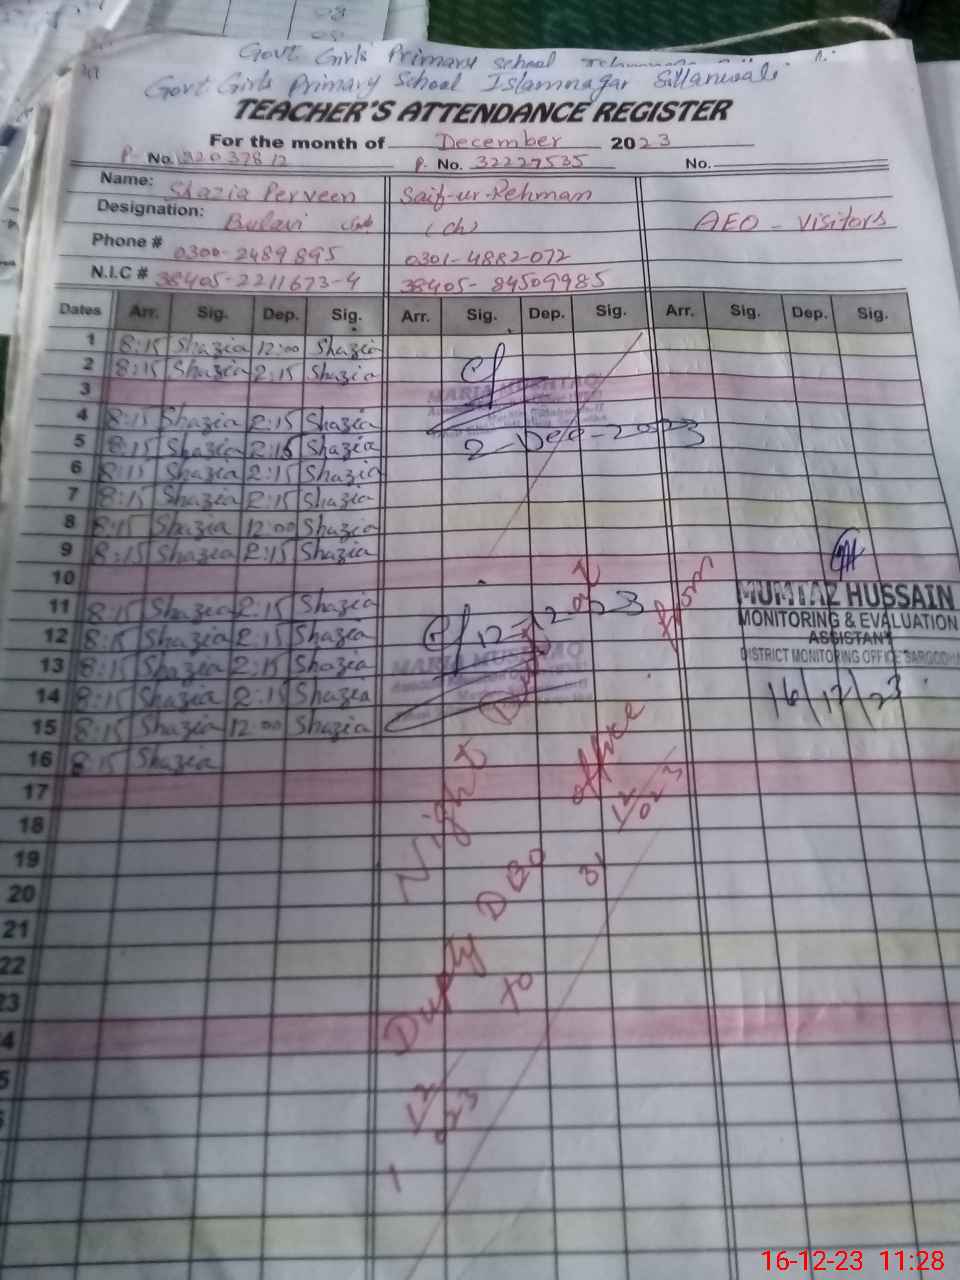 Govt Girls Primary school
Govt Girls Primary School Islamnagar Sillanwali
TEACHER'S ATTENDANCE REGISTER
For the month of December 2023
P. No. P. No. 32227535 No.
Name: Shazia Perveen Saif-ur-Rehman
Designation: (ch) AEO - Visitors
Phone # 0300-2489895 0301-4882072
N.I.C # 38405-2211673-4 38405-84509985
Dates Arr. Sig. Dep. Sig. Arr. Sig. Dep. Sig. Arr. Sig. Dep. Sig.
1 8:15 Shazia 12:00 Shazia
2 8:15 Shazia 2:15 Shazia
3
MARIA MUSHTAQ
4 8:15 Shazia 2:15 Shazia
2-Dec-2023
5 8:15 Shazia 2:15 Shazia
6 8:15 Shazia 2:15 Shazia
7 8:15 Shazia 2:15 Shazia
8 8:15 Shazia 12:00 Shazia
9 8:15 Shazia 2:15 Shazia
10
11 8:15 Shazia 2:15 Shazia
12 8:15 Shazia 2:15 Shazia
13 8:15 Shazia 2:15 Shazia
MARIA MUSHTAQ
14 8:15 Shazia 2:15 Shazia
15 8:15 Shazia 12:00 Shazia
16 8:15 Shazia
17
18
19
20
21
22
23
MUMTAZ HUSSAIN
MONITORING & EVALUATION
ASSISTANT
DISTRICT MONITORING OFFICE SARGODHA
16/12/23
Night Duty at
Duty DEO office from
1 12/023 to 31 12/023
16-12-23 11:28